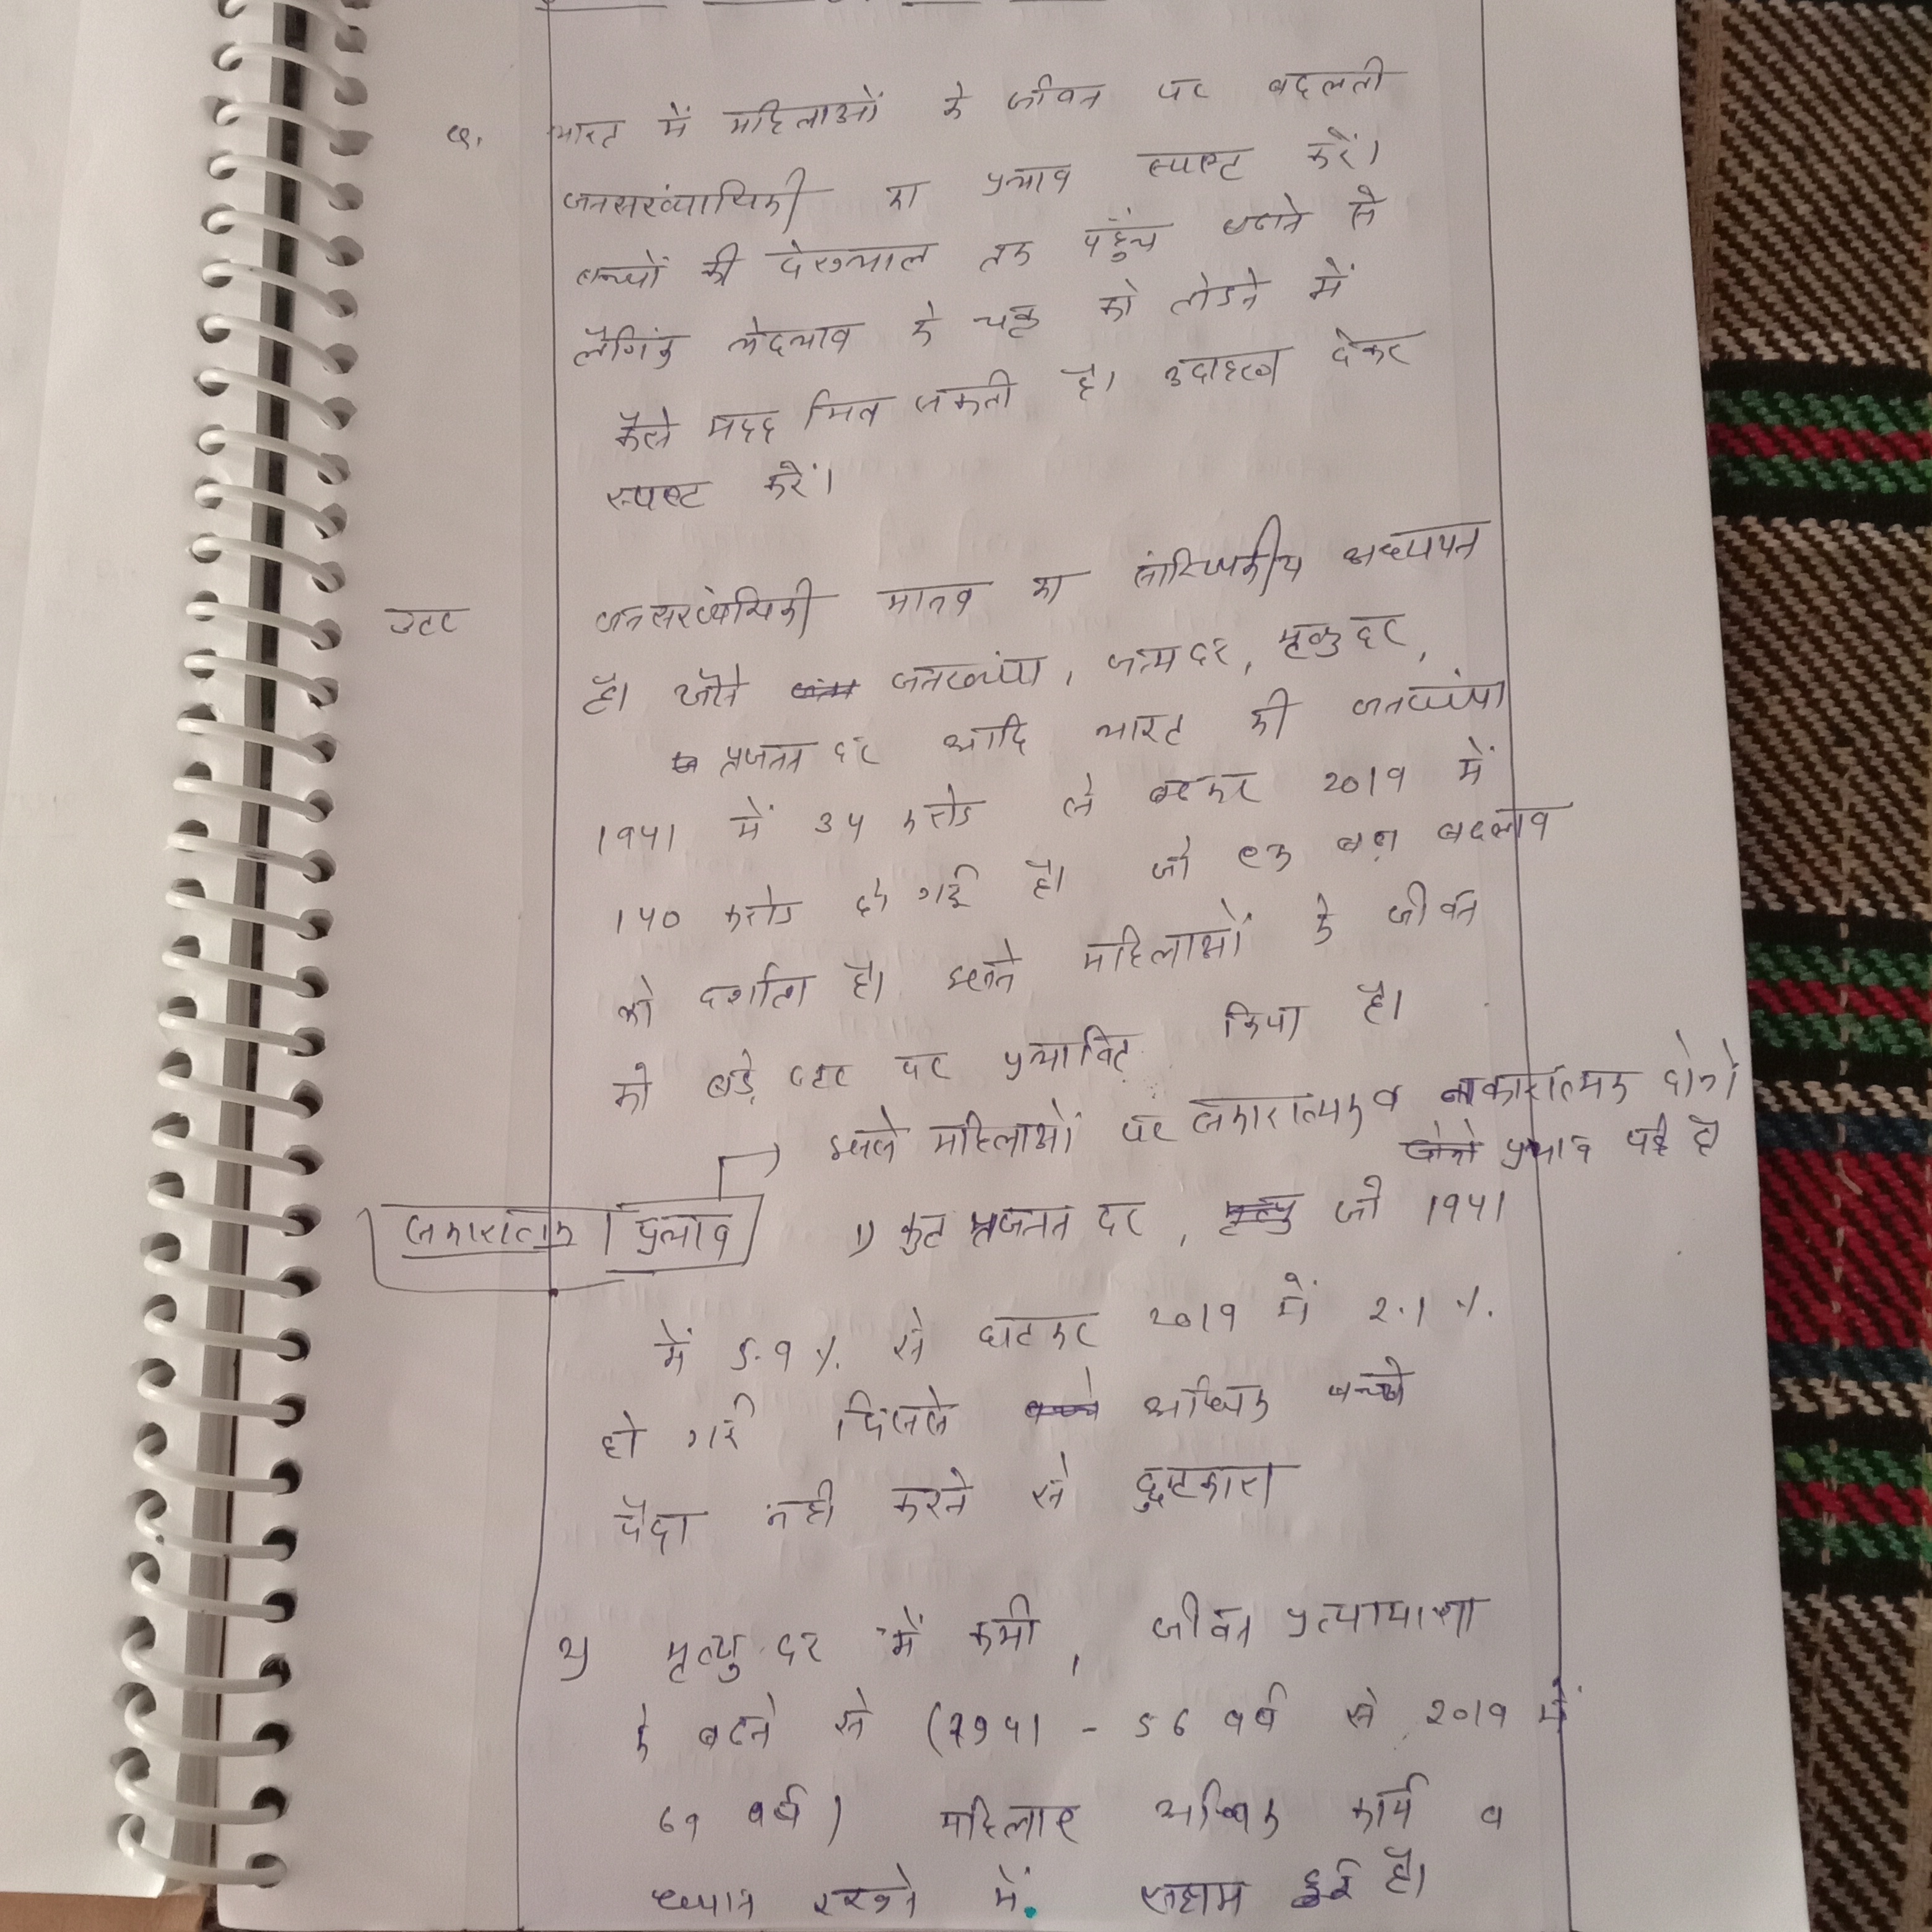 Q. भारत में महिलाओं के जीवन पर बदलती
जनसख्यांयिकी का प्रभाव स्पष्ट करें।
बच्चों की देखभाल तक पहुँच बढाने से
लैगिंक भेदभाव के चक्र को तोडने में
कैसे मदद मिल सकती है। उदाहरण देकर
स्पष्ट करें।
उत्तर जनसख्यंयिकी मानव का सांख्यिकीय अध्ययन
है। जैसे जनसख्यां, जन्मदर, मृत्युदर,
प्रजनन दर आदि भारत की जनसख्यां
1941 में 34 करोड से बढकर 2019 में
140 करोड हो गई है। जो एक बड़ा बदलाव
को दर्शाता है। इसने महिलाओं के जीवन
को बड़े स्तर पर प्रभावित किया है।
इससे महिलाओं पर सकारात्मक व नाकारात्मक दोनो
प्रभाव पड़े है
सकारात्मक प्रभाव 1) कुल प्रजनन दर, जो 1941
में 5.9 %. से घटकर 2019 में 2.1 %.
हो गई जिससे अधिक बच्चे
पैदा नही करने से छुटकारा
2) मृत्यु दर में कमी, जीवन प्रत्यायाशा
के बढने से (1941 - 56 वर्ष से 2019 में
69 वर्ष) महिलाए अधिक कार्य व
ध्यान रखने में सक्षम हुई है।